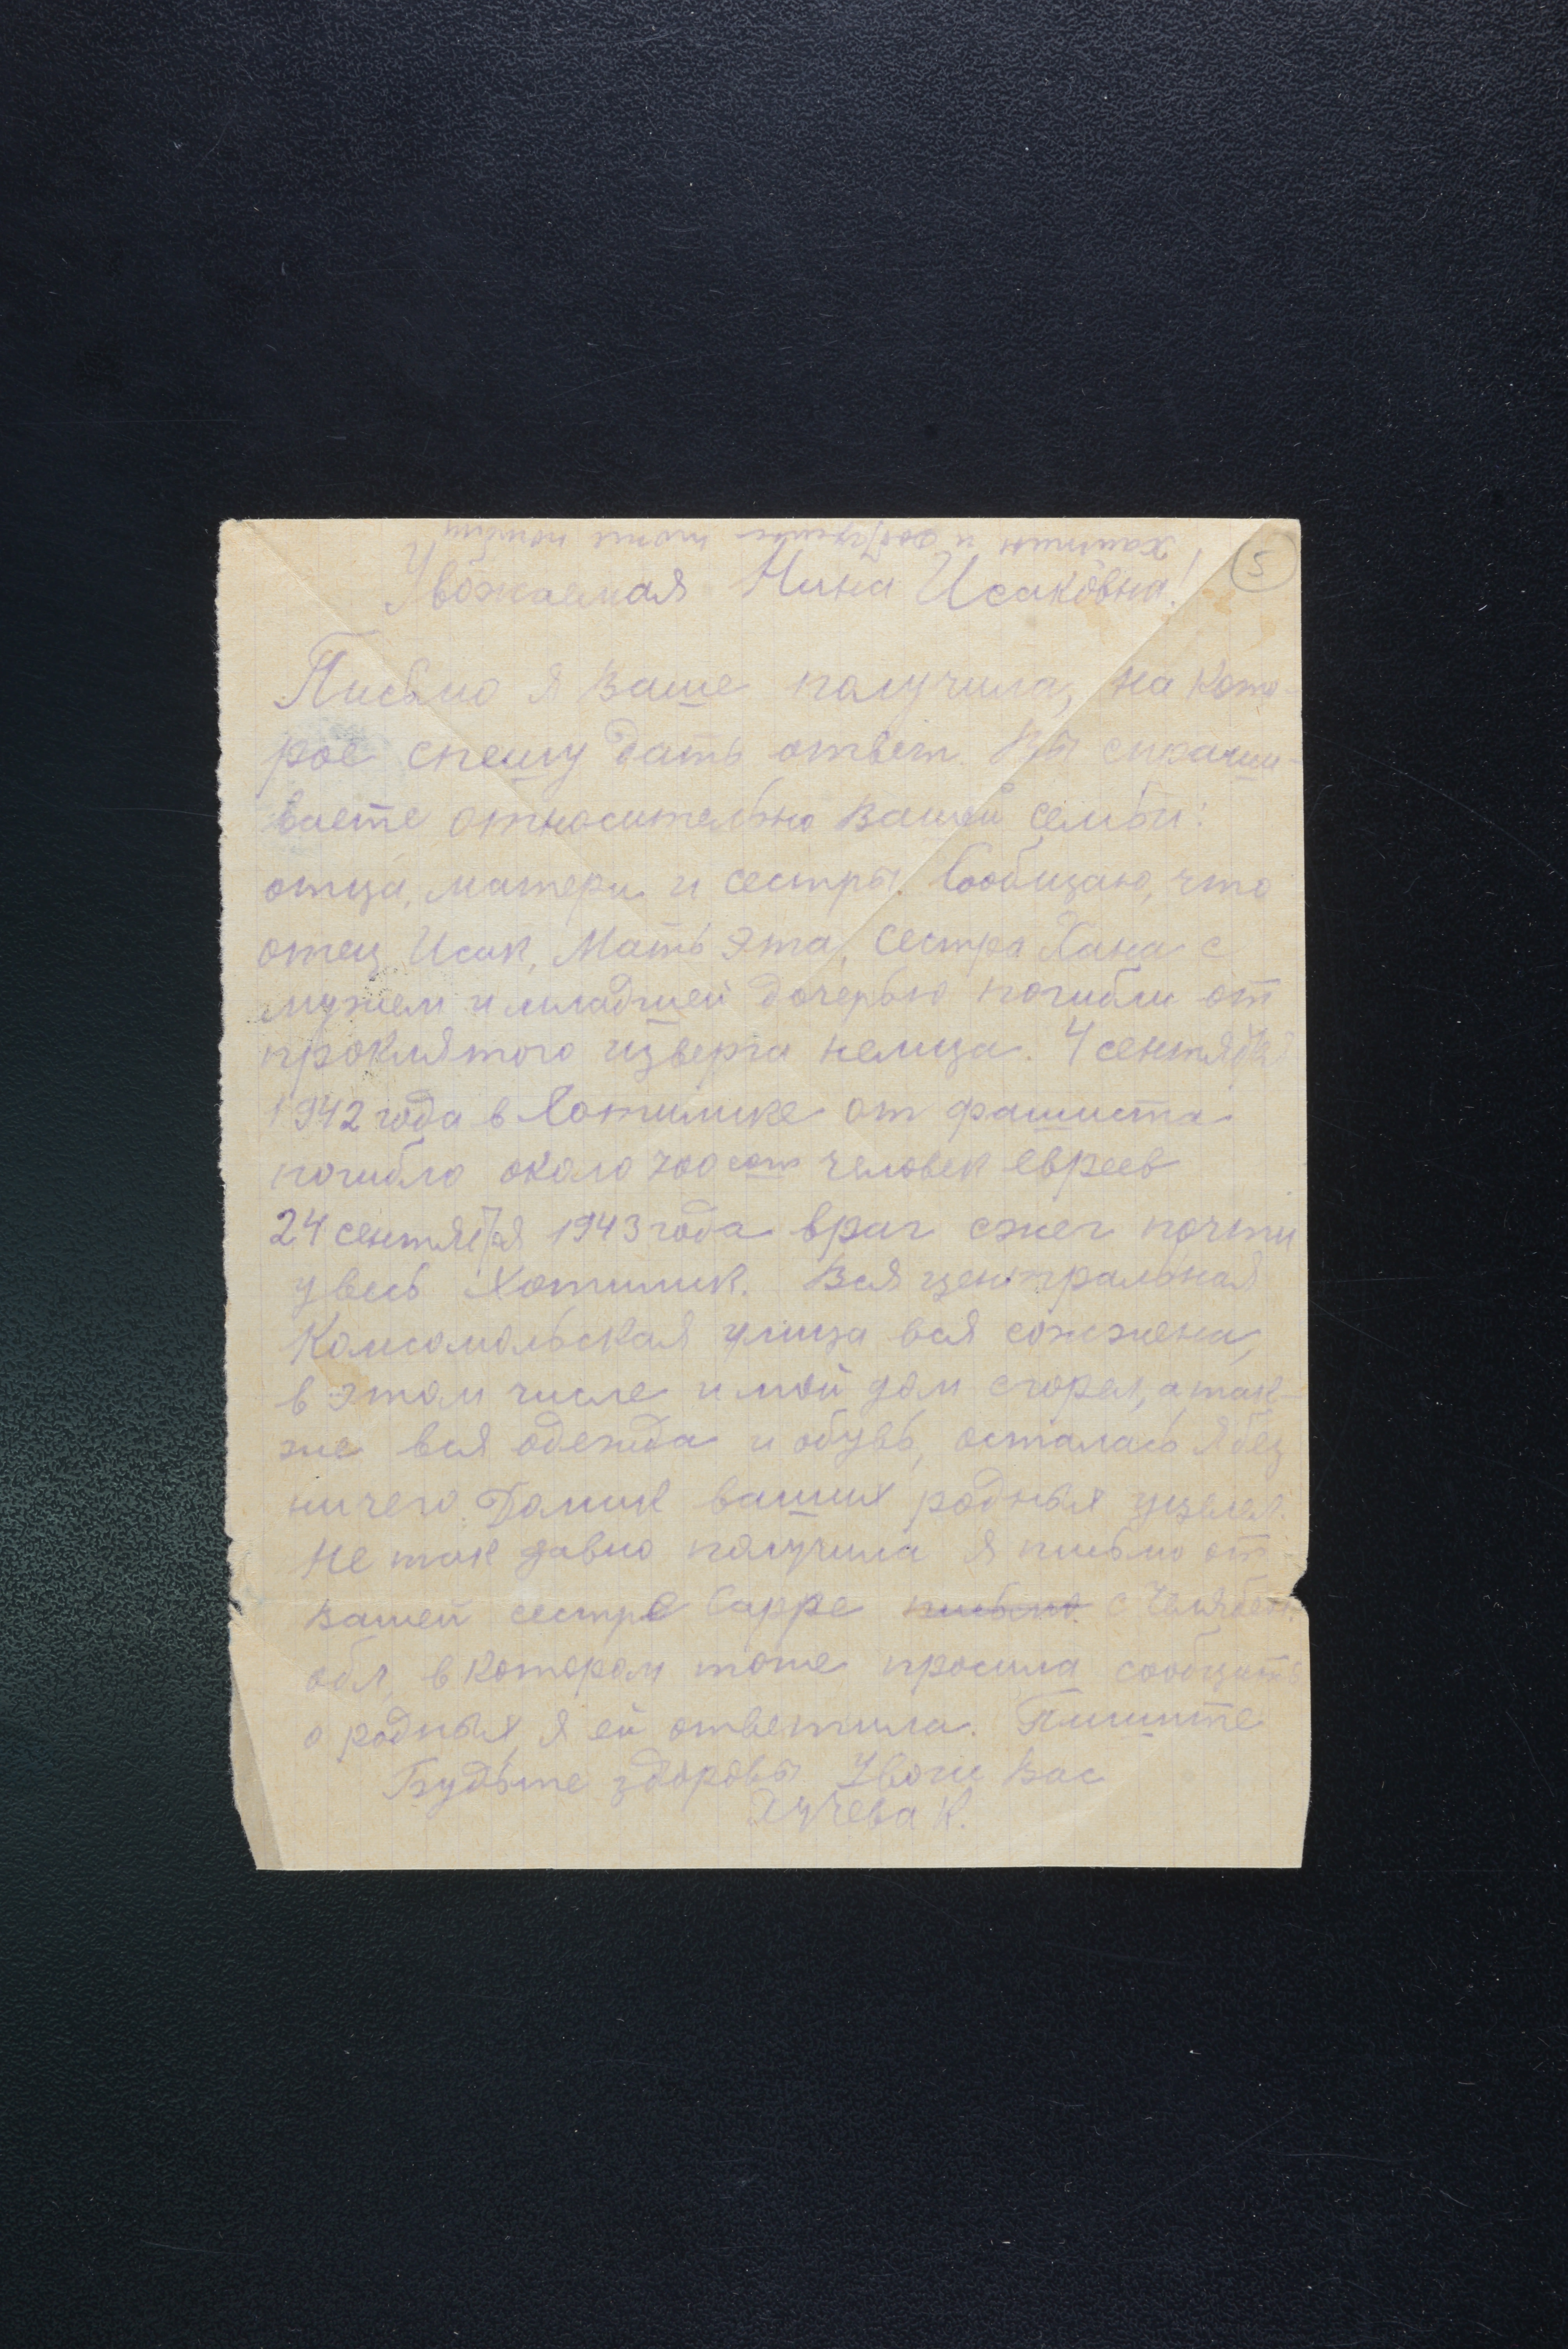 Хаитин и тоже погибли
5
Увожаемая Нина Исаковна!
Письмо я Ваше получила, на кото-
рое спешу дать ответ. Вы спраши-
ваете относительно Вашей семьи:
отца, матери и сестры. Сообщаю, что
отец Исак, Мать Эта, сестра Хана с
мужем и младшей дочерью погибли от
проклятого изверга немца. 4 сентября
1942 года в Хотимске от фашиста
погибло около 700 сот человек евреев
24 сентября 1943 года враг сжег почти
увесь Хотимск. Вся центральная
Комсомольская улица вся сожжена,
в этом числе и мой дом сгорел, а так-
же вся одежда и обувь, осталась я без
ничего. Домик ваших родных уцелел.
Не так давно получила я письмо от
вашей сестре Сарре письмо с Челябен.
обл, в котором тоже просила сообщить
о родных, я ей ответила. Пишите
Будьте здоровы
К.